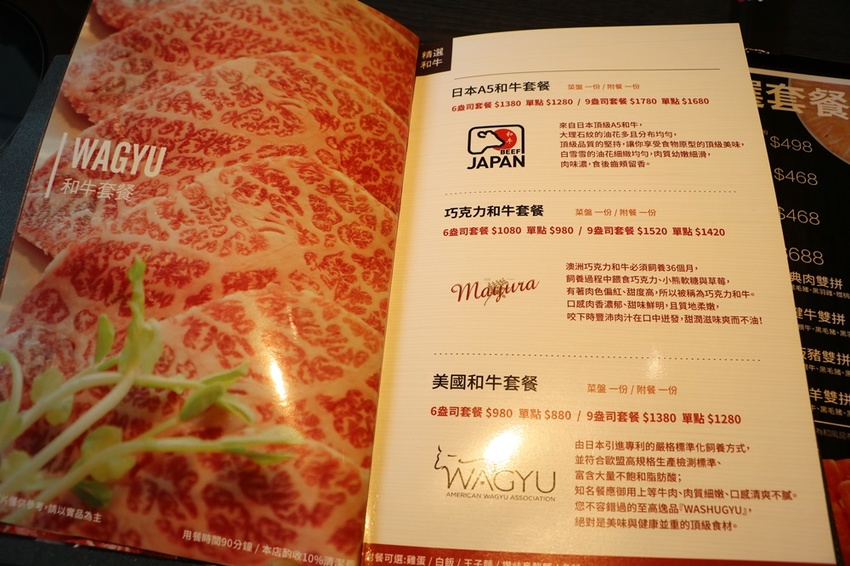 WAGYU
和牛套餐
用餐時間90分鐘 / 本店酌收10%清潔
精選
和牛
日本A5和牛套餐 菜盤 一份 / 附餐 一份
6盎司套餐 $1380 單點 $1280 / 9盎司套餐 $1780 單點 $1680
和牛
BEEF
JAPAN
來自日本頂級A5和牛，
大理石紋的油花多且分布均勻，
頂級品質的堅持，讓你享受食物原型的頂級美味，
白雪雪的油花細緻均勻，肉質幼嫩細滑，
肉味濃，食後齒頰留香。
巧克力和牛套餐 菜盤 一份 / 附餐 一份
6盎司套餐 $1080 單點 $980 / 9盎司套餐 $1520 單點 $1420
Mayura
澳洲巧克力和牛必須飼養36個月，
飼養過程中餵食巧克力、小熊軟糖與草莓，
有著肉色偏紅、甜度高，所以被稱為巧克力和牛。
口感肉香濃郁、甜味鮮明，且質地柔嫩，
咬下時豐沛肉汁在口中迸發，甜潤滋味爽而不油!
美國和牛套餐 菜盤 一份 / 附餐 一份
6盎司套餐 $980 單點 $880 / 9盎司套餐 $1380 單點 $1280
WAGYU
AMERICAN WAGYU ASSOCIATION
由日本引進專利的嚴格標準化飼養方式，
並符合歐盟高規格生產檢測標準、
富含大量不飽和脂肪酸；
知名餐應御用上等牛肉、肉質細嫩、口感清爽不膩。
您不容錯過的至高逸品『WASHUGYU』，
絕對是美味與健康並重的頂級食材。
附餐可選:雞蛋 / 白飯 / 王子麵
套餐
$498
$468
$468
$688
典肉雙拼
牛雙拼
豬雙拼
羊雙拼